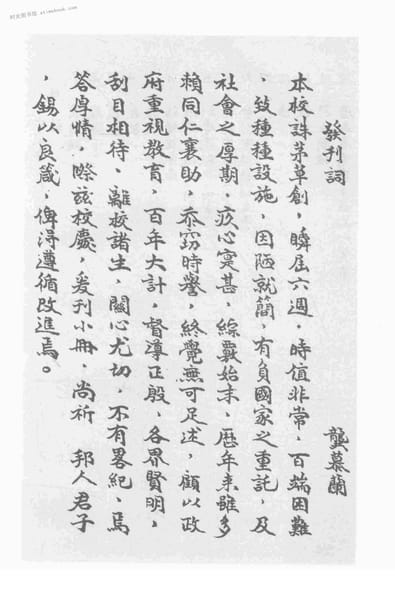 时光图书馆 atimebook.com
發刊詞
龔慕蘭
本校誅茅草創，瞬屆六週，時值非常，百端困難
，致種種設施，因陋就簡，有負國家之重託，及
社會之厚期，疚心寔甚，綜覈始末，歷年來雖多
賴同仁襄助，忝窃時譽，終覺無可足述，顧以政
府重視教育，百年大計，督導正殷，各界賢明，
刮目相待，離校諸生，關心尤切，不有畧紀，焉
答厚情，際茲校慶，爰刊小冊，尚祈 邦人君子
，錫以良箴，俾得遵循改進焉。